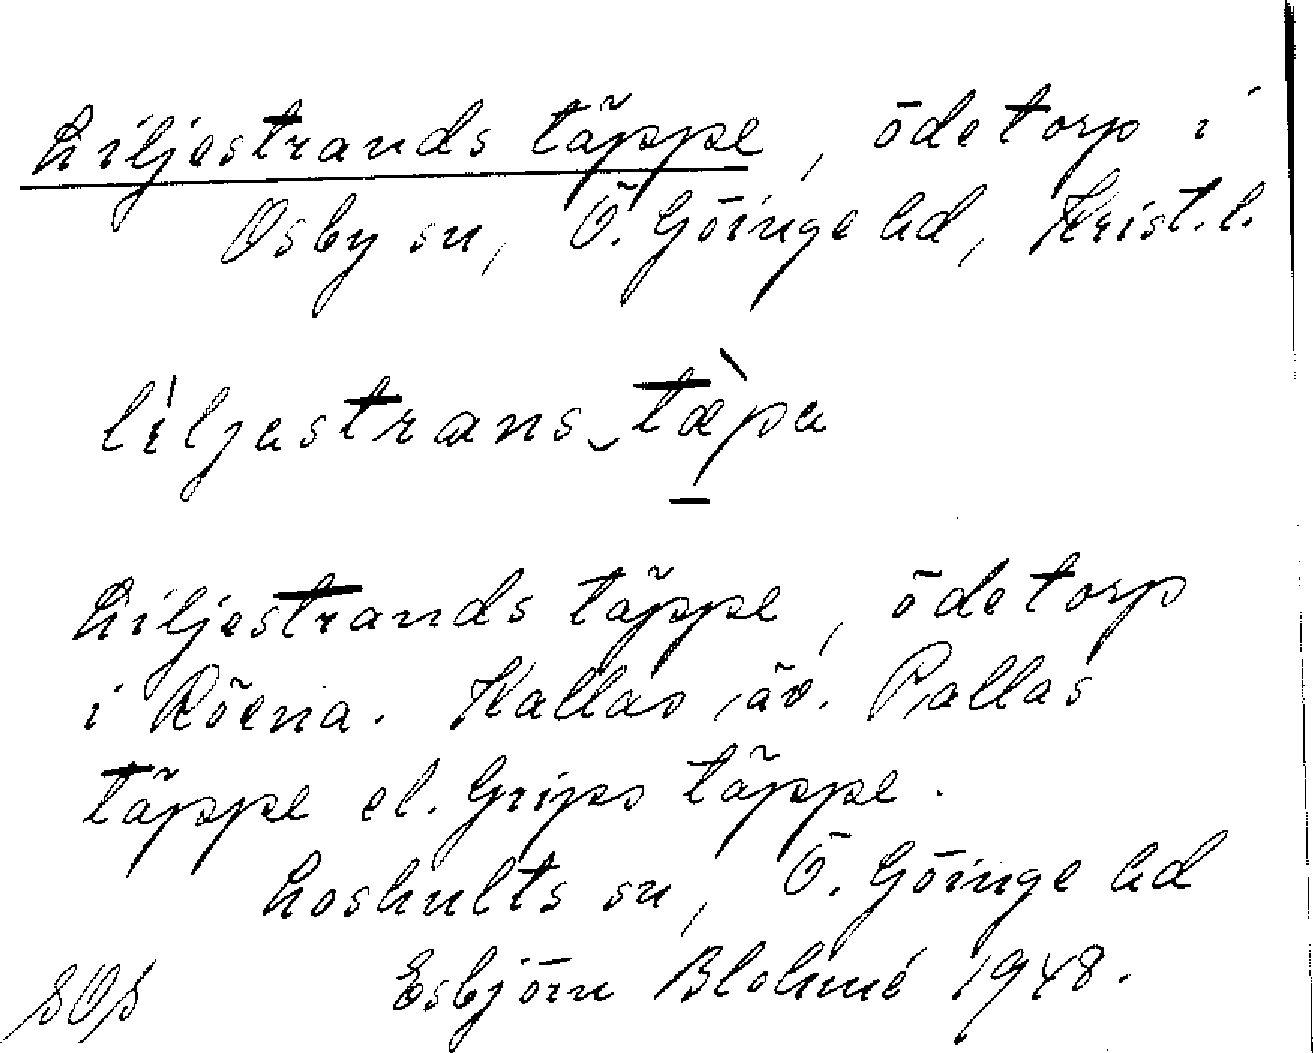 Liljestrands täppe, ödetorp i
Osby sn, Ö. Göinge hd, Krist. l.
liljastrans tæpa
Liljestrands täppe, ödetorp
i Röena. Kallas äv. Pallas
täppe el. Grips täppe.
Loshults sn, Ö. Göinge hd
Esbjörn Blohmé 1948.